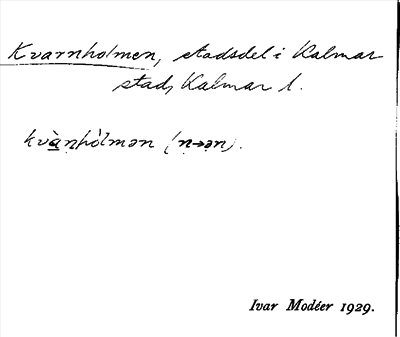 Kvarnholmen, stadsdel i Kalmar
stad, Kalmar l.
kvànhòlmən (ṇ→ən).
Ivar Modéer 1929.